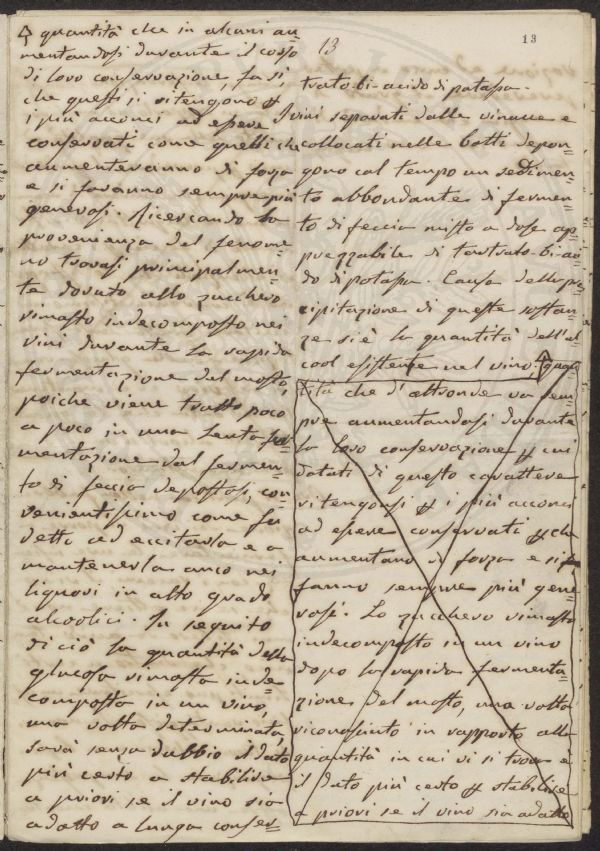 quantità che in alcuni au=
mentandosi durante il corso
di loro conservazione, fa sì,
che questi si ritengono
i più acconci ad essere
conservati come quelli che
aumenteranno di forza
e si faranno sempre più
generosi. Ricercando la
provenienza del fenome=
no trovasi principalmen=
te dovuto allo zucchero
rimasto indecomposto nei
vini durante la rapida
fermentazione del mosto,
poiche viene tratto poco
a poco in una lenta fer=
mentazione dal fermen=
to di feccia depostosi, con=
venientissimo come fu
detto ad eccitarla e a
mantenerla anco nei
liquori in alto grado
alcoolici. In seguito
di ciò la quantità della
glucosa rimasta inde=
composta in un vino,
una volta determinata,
sarà senza dubbio il dato
più certo a stabilire
a priori se il vino sia
adatto a lunga conser=
13
13
trato bi-acido di potassa.
I vini separati dalle vinacce e
collocati nelle botti depon=
gono col tempo un sedimen=
to abbondante di fermen=
to di feccia misto a dose ap=
prezzabile di tartrato bi-aci=
do di potassa. Causa della pre=
cipitazione di queste sostan=
ze si è la quantità dell'al=
cool esistente nel vino; quan=
tità che d'altronde va sem=
pre aumentandosi durante
la loro conservazione cui
dotati di questo carattere
ritengonsi i più acconci
ad essere conservati che
aumentano di forza e si
fanno sempre più gene=
rosi. Lo zucchero rimasto
indecomposto in un vino
dopo la rapida fermenta=
zione del mosto, una volta
riconosciuto in rapporto alla
quantità in cui vi si trova è
il dato più certo stabilire
a priori se il vino sia adatto